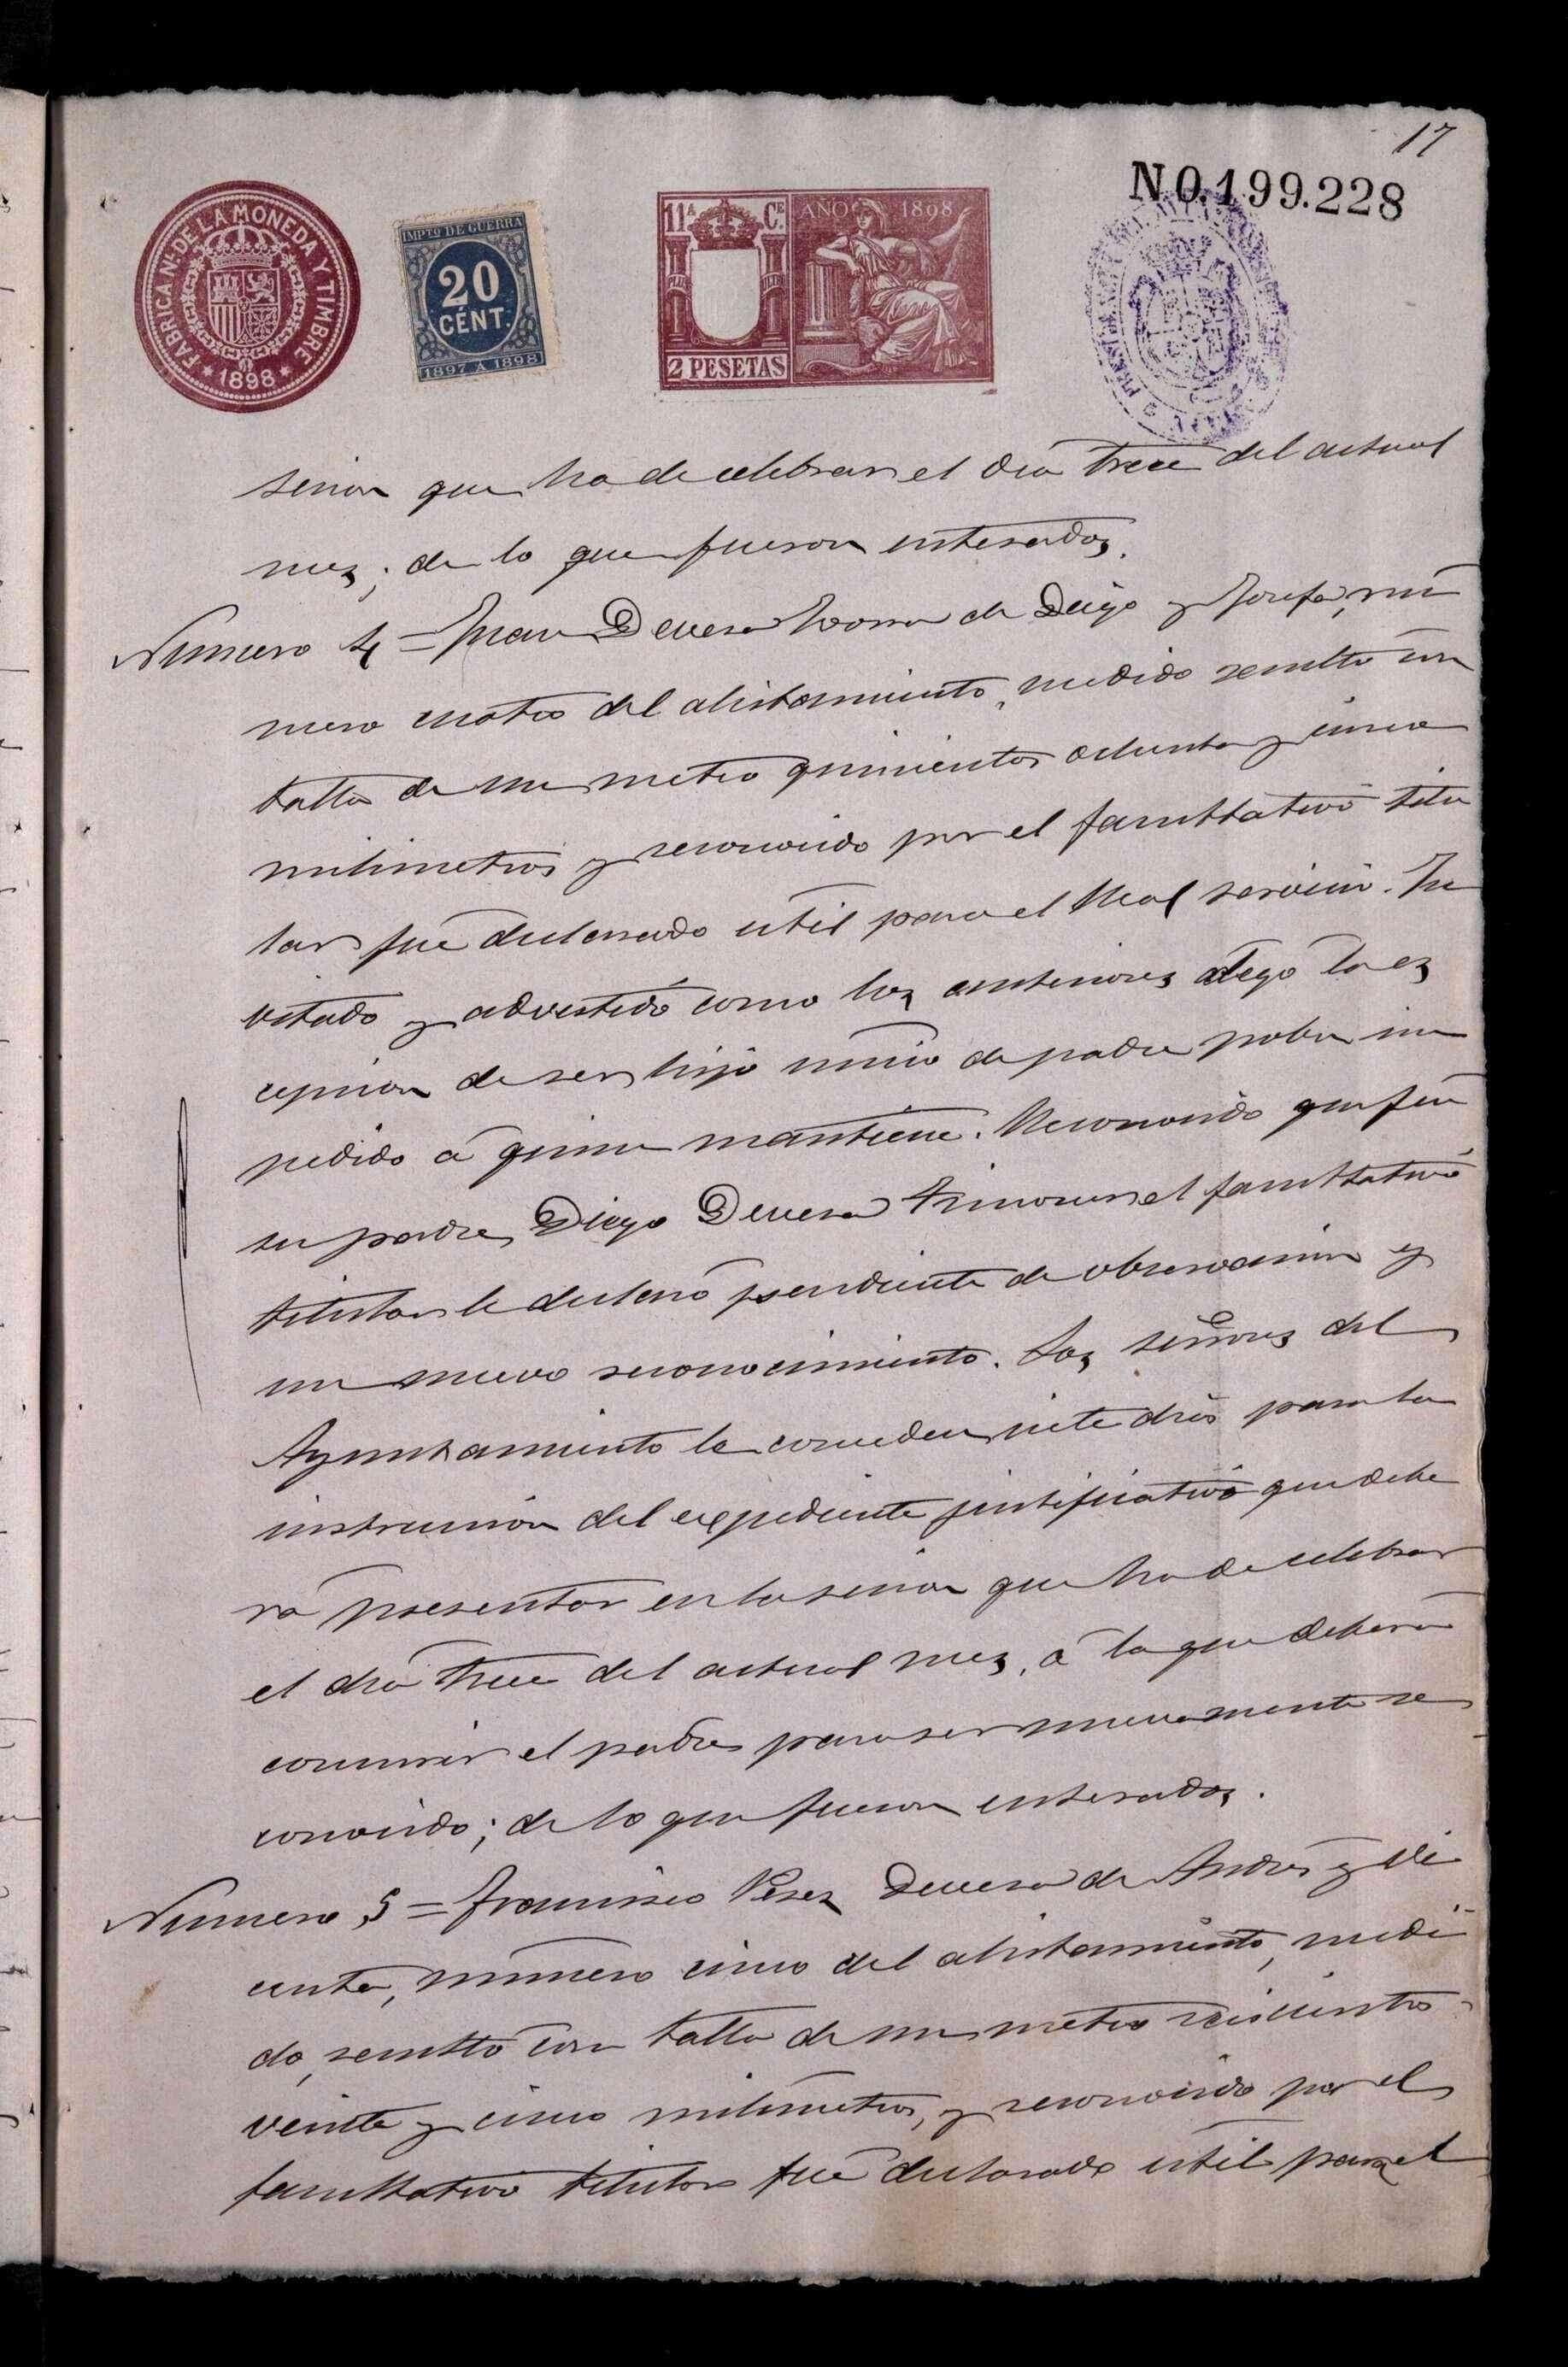 17
N.0.199.228
FABRICA Nal DE LA MONEDA Y TIMBRE
* 1898 *
IMPTO DE GUERRA
20
CÉNT.
1897 A 1898
11ª Ce.
AÑO 1898
PLUS ULTRA
2 PESETAS
sesion que ha de celebrar el dia trece del actual
mes; de lo que fueron enterados.
Numero 4 = Juan Devesa de Diego y Josefa, nú
mero cuatro del alistamiento, medido resultó con
talla de un metro quinientos ochenta y cinco
milimetros y reconocido por el facultativo titu
lar fué declarado útil para el Real servicio. In
vitado y advertido como los anteriores alegó la es
cepcion de ser hijo unico de padre pobre im
pedido á quien mantiene. Reconocido que fué
su padre Diego Devesa el facultativo
titular le declaró pendiente de observacion y
un nuevo reconocimiento. Los señores del
Ayuntamiento le conceden siete dias para la
instruccion del expediente justificativo que debe
rá presentar en la sesion que ha de celebrar
el dia trece del actual mes, á la que deberá
concurrir el padre para ser nuevamente re
conocido; de lo que fueron enterados.
Numero 5 = Francisco Perez Devesa de Andres y Vi
centa, número cinco del alistamiento, medi
do, resultó con talla de un metro seiscientos
veinte y cinco milimetros, y reconocido por el
facultativo titular fué declarado útil para el